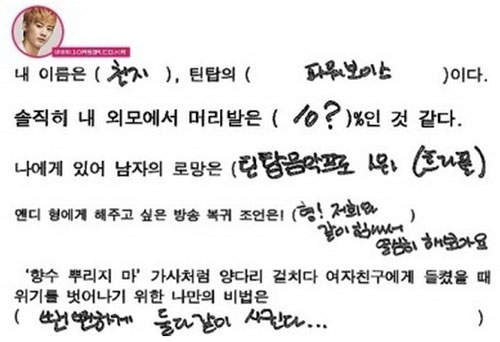 WWW.10ASIA.CO.KR
내 이름은 ( 천지 ), 틴탑의 ( 파워보이스 )이다.
솔직히 내 외모에서 머리발은 ( 10? )%인 것 같다.
나에게 있어 남자의 로망은 (틴탑음악프로 1위! (트리플)
앤디 형에게 해주고 싶은 방송 복귀 조언은! (형! 저희와 )
같이 힘내서
열심히 해보아요
'향수 뿌리지 마' 가사처럼 양다리 걸치다 여자친구에게 들켰을 때
위기를 벗어나기 위한 나만의 비법은
( 뻔뻔하게 둘다같이 사귄다... )